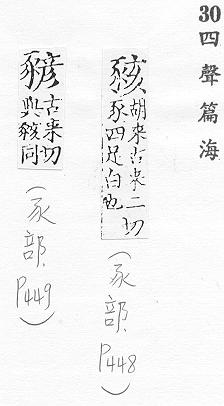 30 四聲篇海
豥
胡來古來二切
豕四足白也
(豕部 P448)
古來切
與豥同
(豕部 P449)